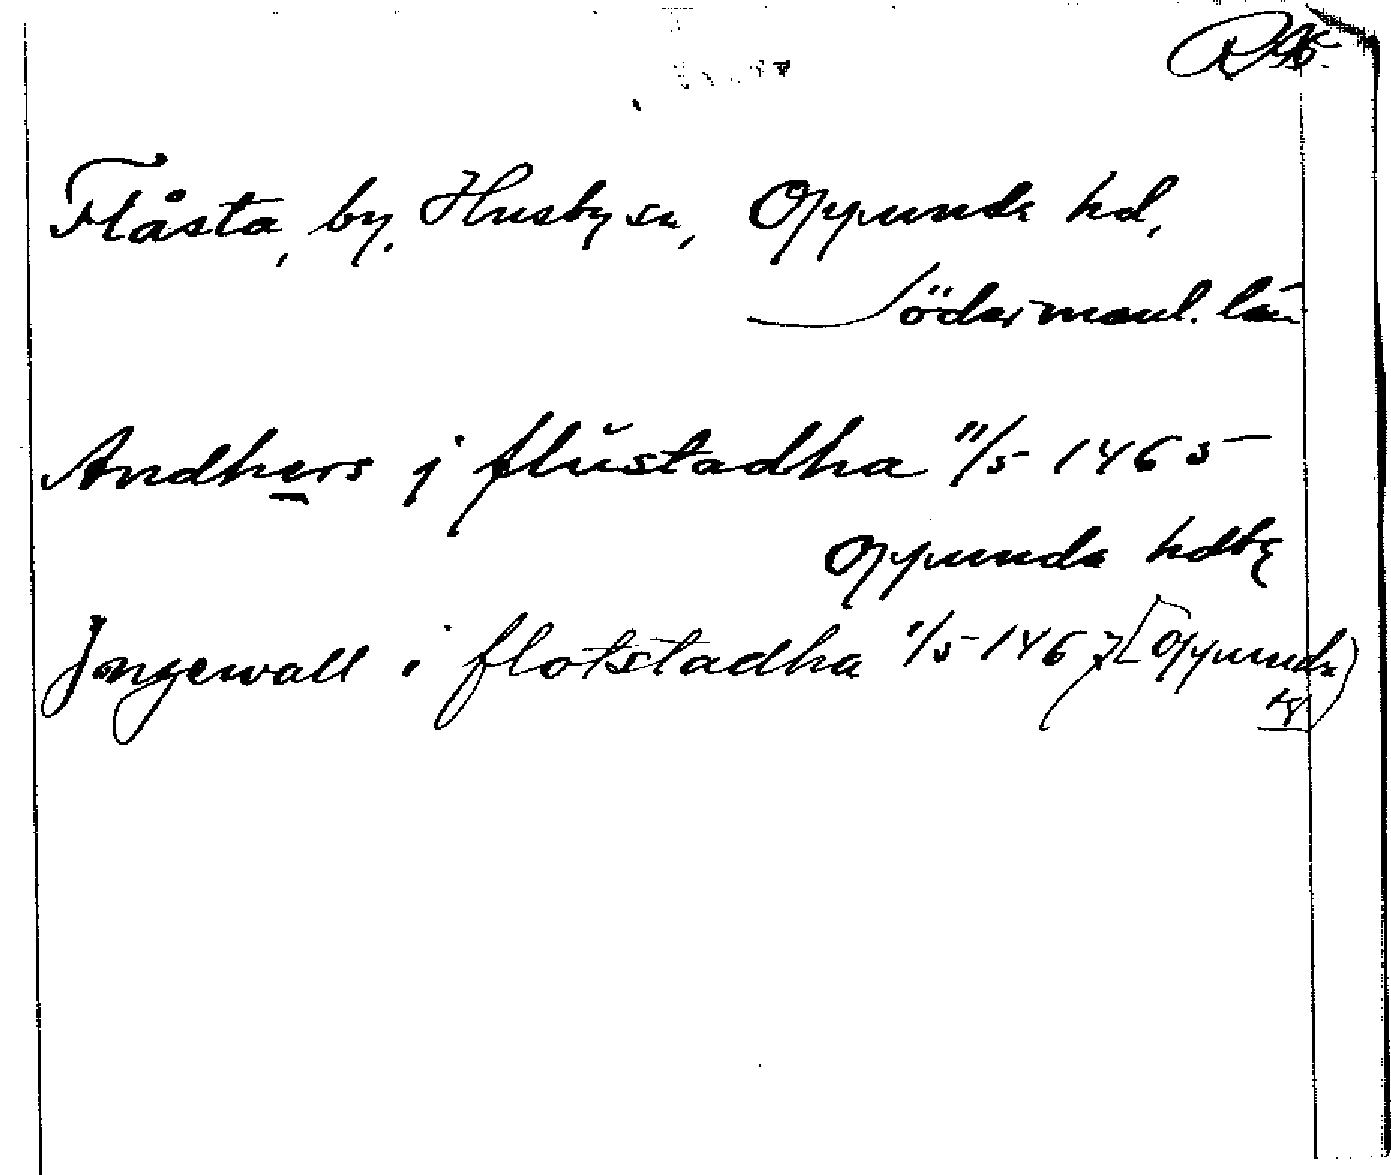 Flåsta, by, Husby sn, Oppunda hd,
Södermanl. län
Andhers j flŭstadha 11/5 1465
Oppunda hdtg
Jngewall i flotstadha 1/5 1467 [Oppunda